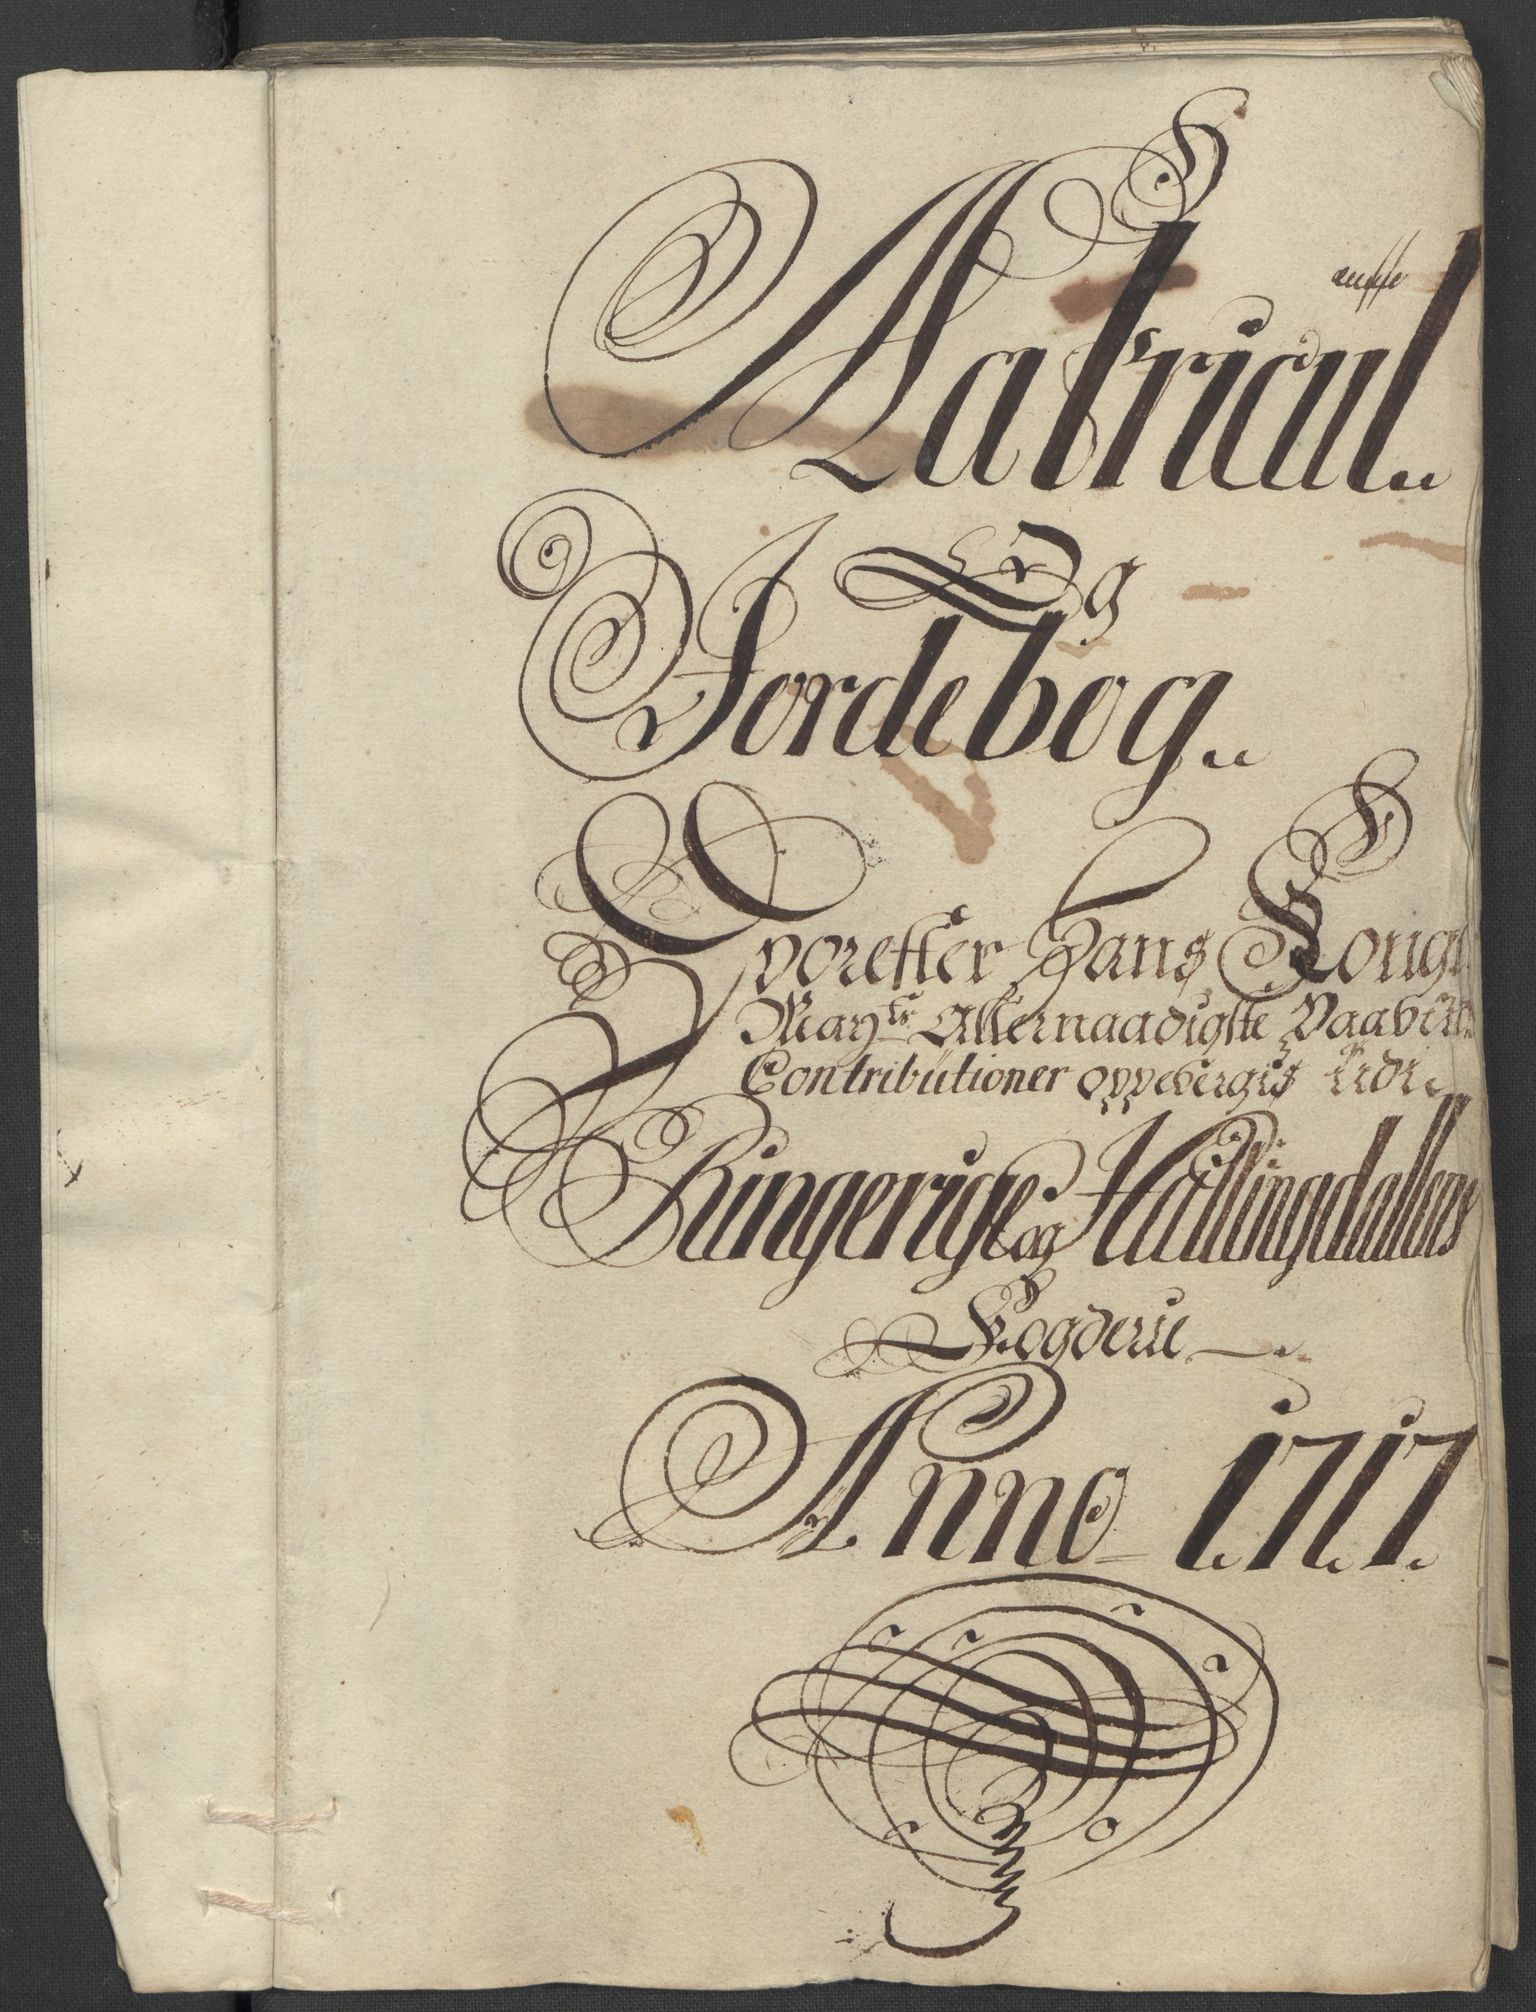 Matricul..
Og
Jordebog..
Hvorefter Hans Kongl
May:ts Allernaadigste Paabudne
Contributioner oppebergis udi
Ringerige og Hallingdallens
Fogderie
Anno 1717.